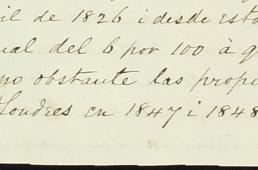 il de 1826 i desde esta
ual del 6 por 100 á q
no obstante las prope
Londres en 1847 i 1848